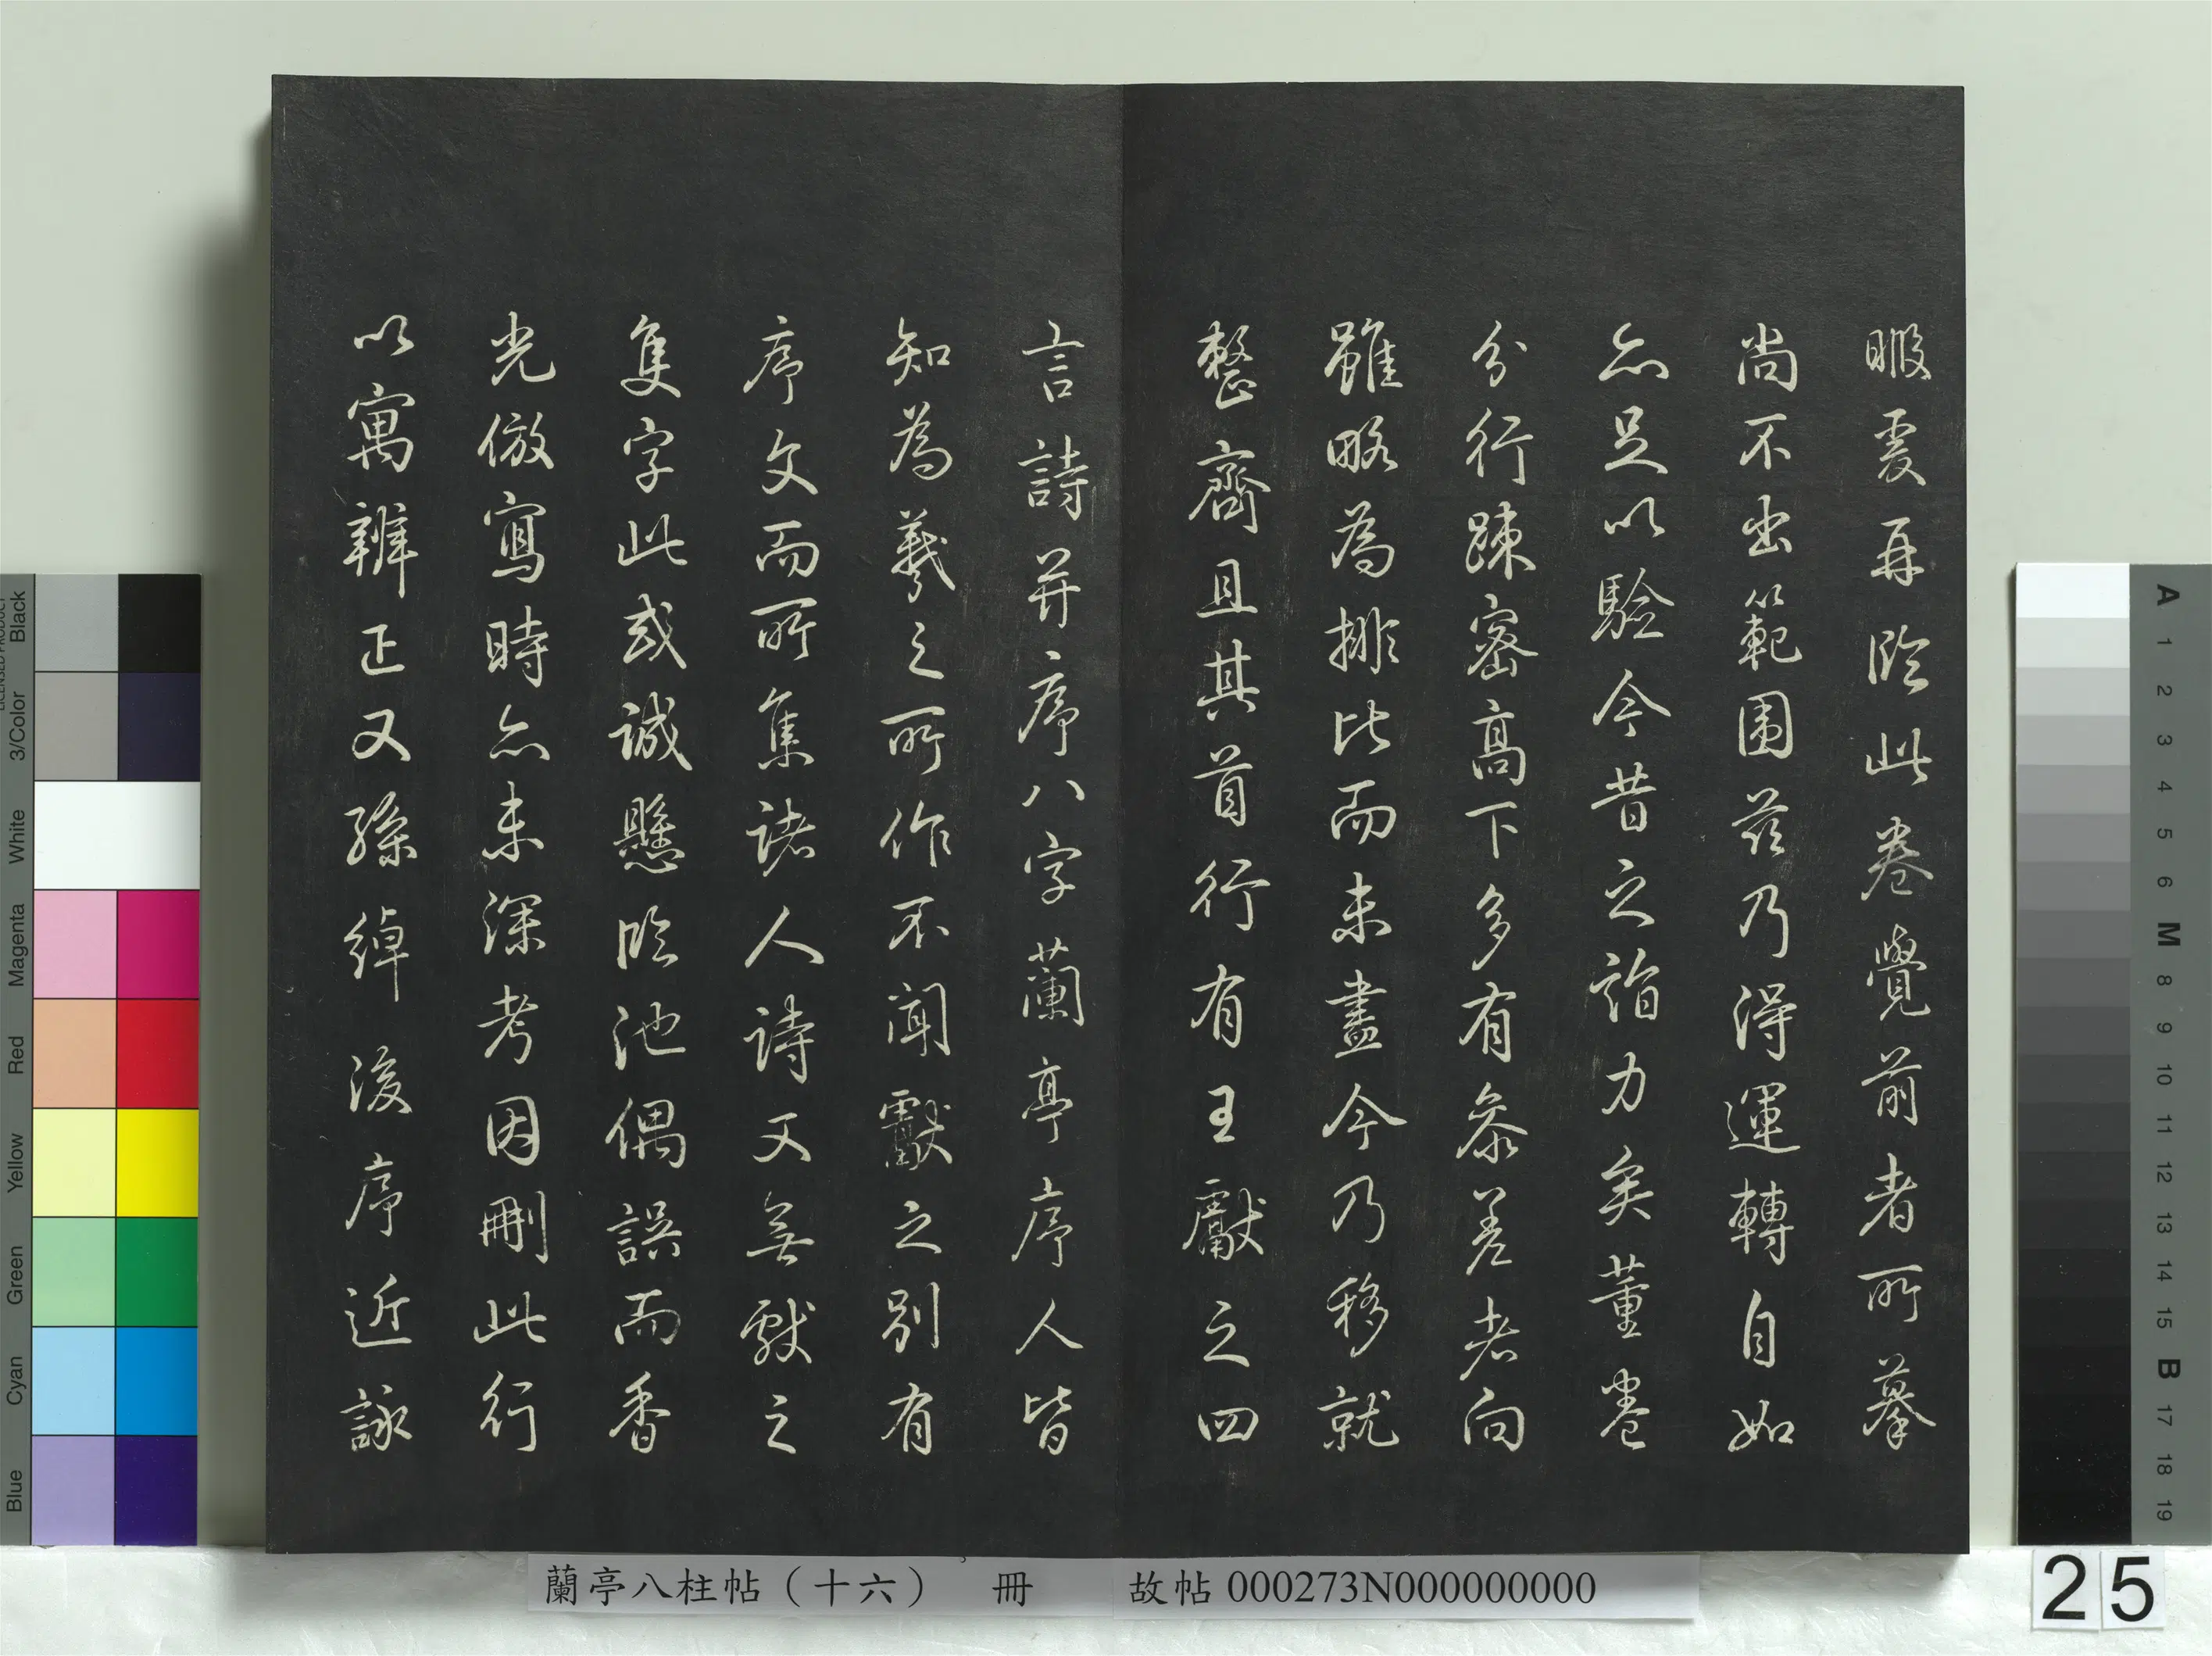 暇爰再臨此卷覺前者所摹
尚不出範圍茲乃得運轉自如
亦足以驗今昔之詣力矣董卷
分行疎密高下多有叅差者向
雖略為排比而未盡今乃移就
整齊且其首行有王獻之四
言詩并序八字蘭亭序人皆
知為羲之所作不聞獻之別有
序文而所集諸人詩又無獻之
隻字此或誠懸臨池偶誤而香
光倣寫時亦未深考因刪此行
以寓辨正又孫綽後序近詠
蘭亭八柱帖（十六） 冊 故帖000273N000000000
25
Black
3/Color
White
Magenta
Red
Yellow
Green
Cyan
Blue
A 1 2 3 4 5 6 M 8 9 10 11 12 13 14 15 B 17 18 19